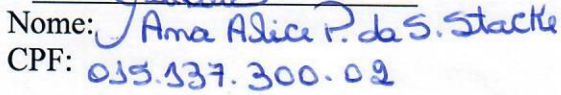 Nome: Ana Alice P. da S. Stacke
CPF: 015.137.300.02